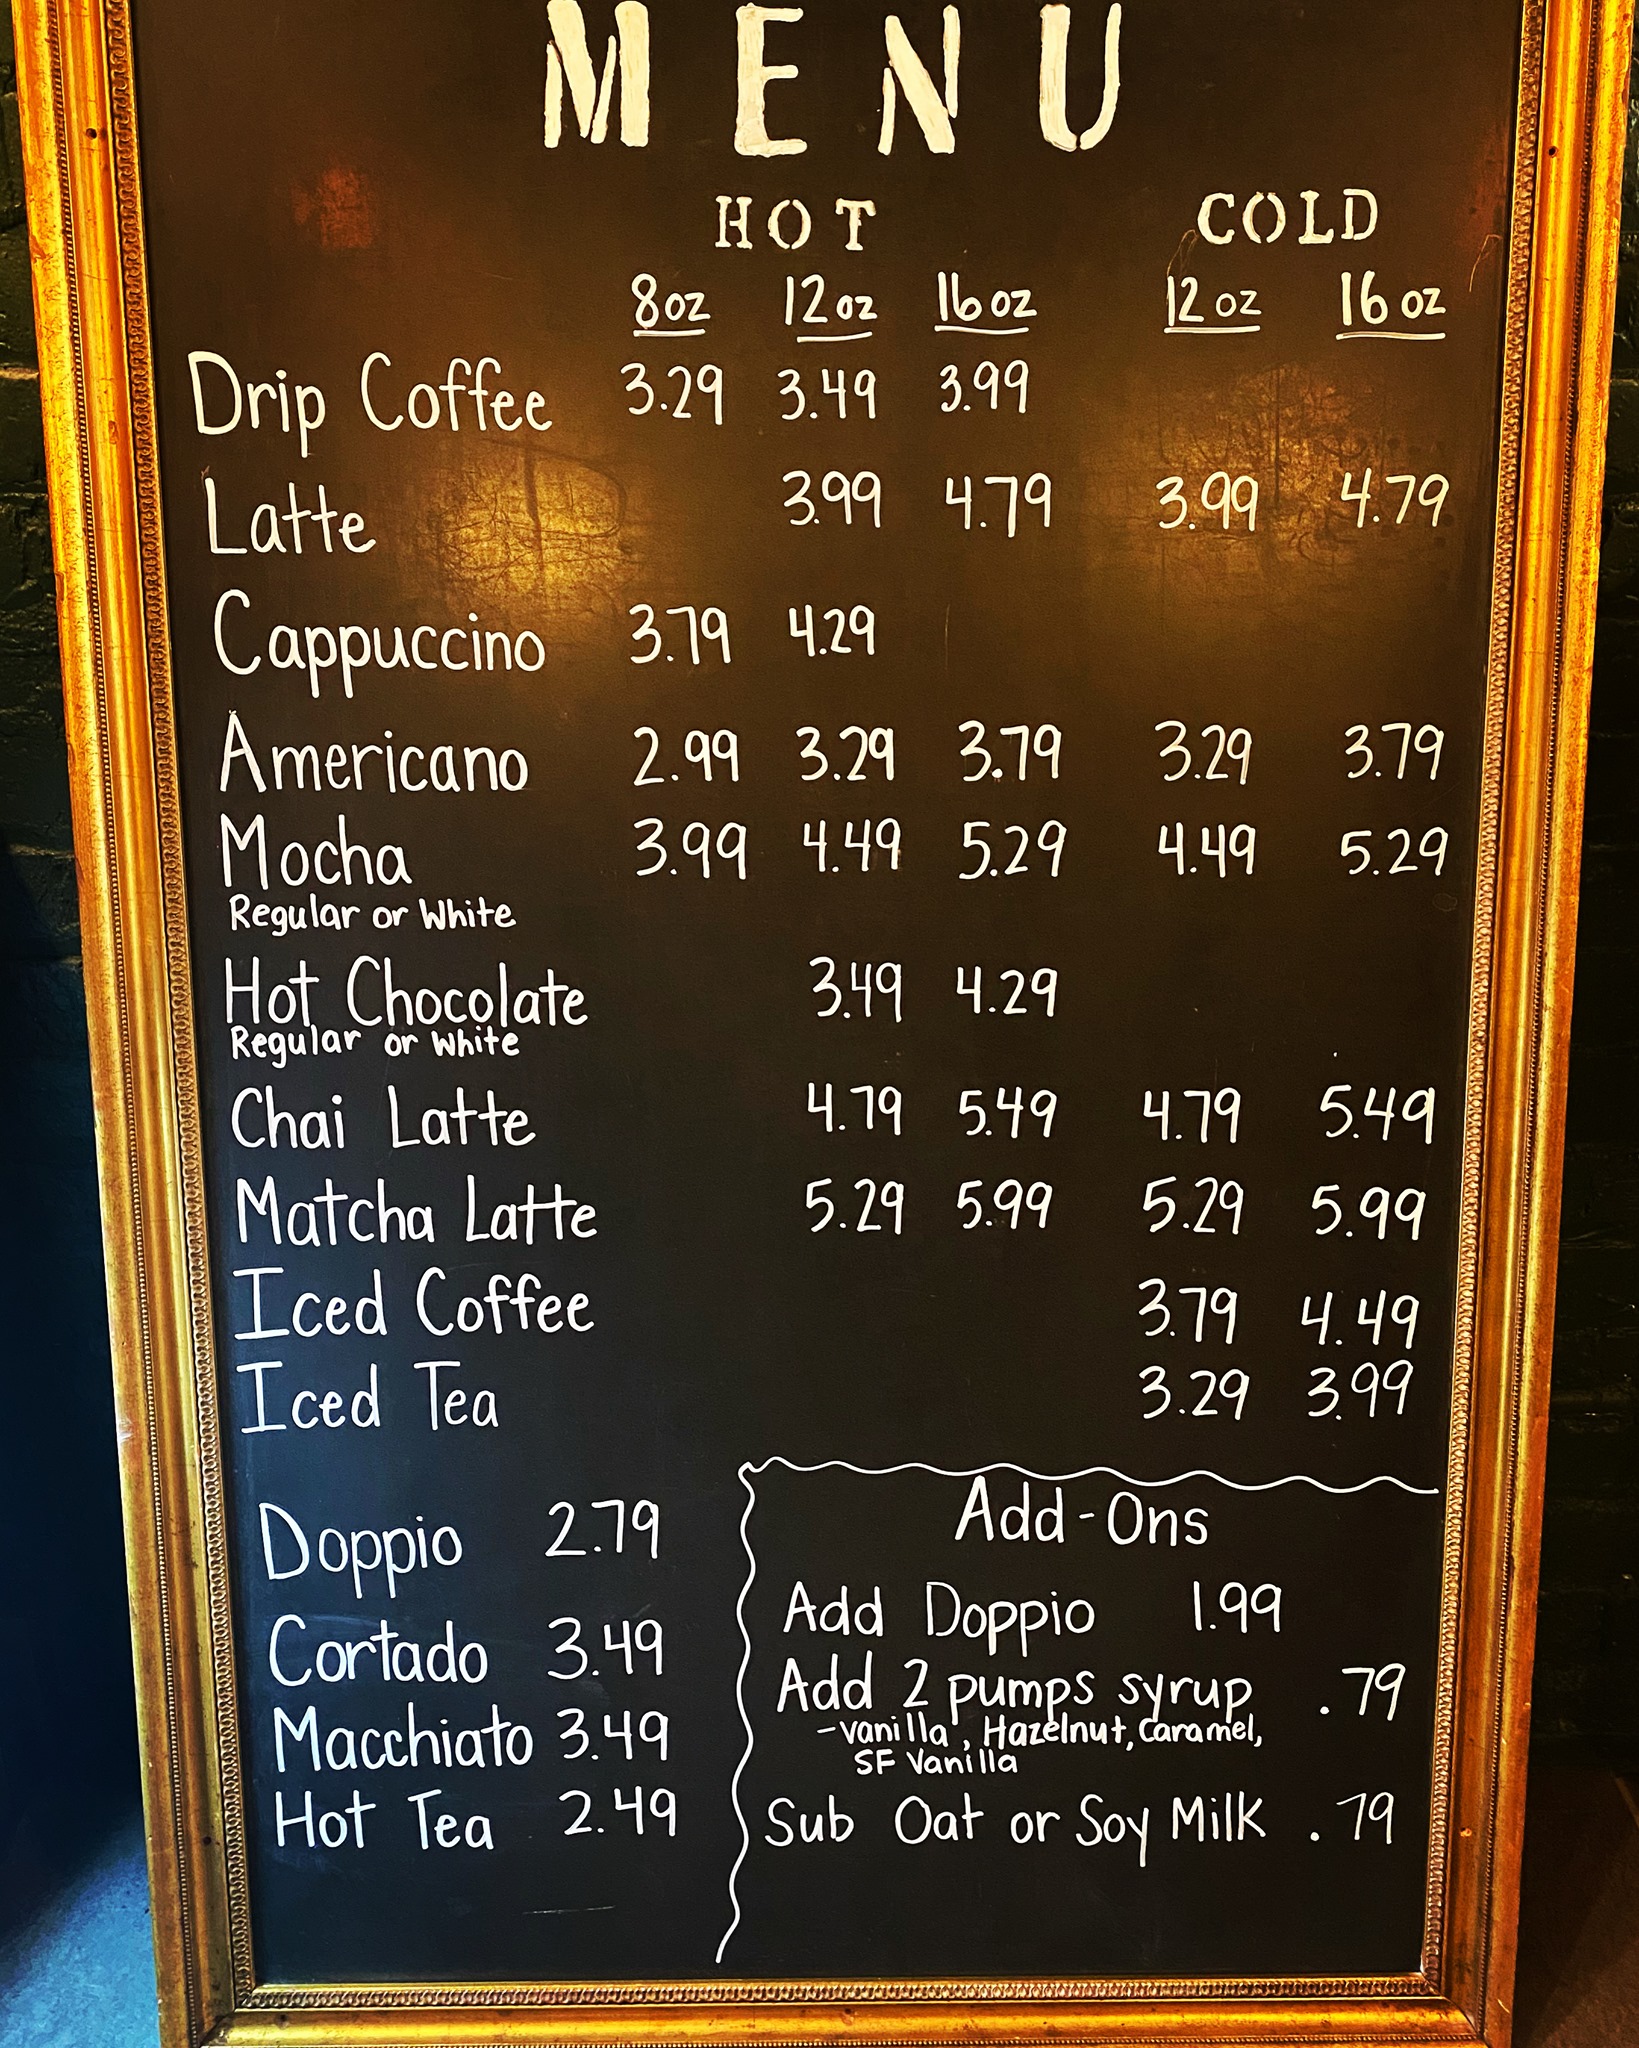 MENU
HOT COLD
8oz 12oz 16oz 12oz 16oz
Drip Coffee 3.29 3.49 3.99
Latte 3.99 4.79 3.99 4.79
Cappuccino 3.79 4.29
Americano 2.99 3.29 3.79 3.29 3.79
Mocha 3.99 4.49 5.29 4.49 5.29
Regular or White
Hot Chocolate 3.49 4.29
Regular or White
Chai Latte 4.79 5.49 4.79 5.49
Matcha Latte 5.29 5.99 5.29 5.99
Iced Coffee 3.79 4.49
Iced Tea 3.29 3.99
Doppio 2.79
Cortado 3.49
Macchiato 3.49
Hot Tea 2.49
Add-Ons
Add Doppio 1.99
Add 2 pumps syrup .79
-vanilla, Hazelnut, Caramel,
SF Vanilla
Sub Oat or Soy Milk .79